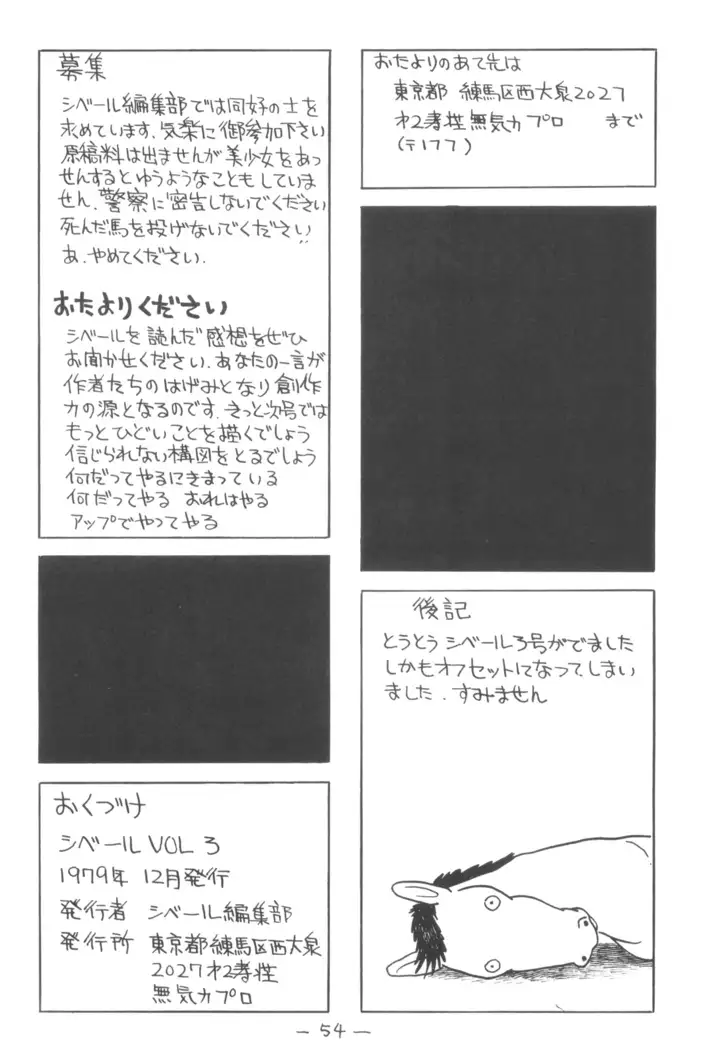 おたよりのあて先は
東京都 練馬区西大泉2027
才2孝荘無気力プロ まで
(〒177)
募集
シベール編集部では同好の士を
求めています.気楽に御参加下さい
原稿料は出ませんが美少女をあっ
せんするとゆうようなこともしていま
せん.警察に密告しないでください
死んだ馬を投げないでください!!
あ.やめてください.
おたよりください
シベールを読んだ感想をぜひ
お聞かせください.あなたの一言が
作者たちのはげみとなり創作
力の源となるのです.きっと次号では
もっとひどいことを描くでしょう
信じられない構図をとるでしょう
何だってやるにきまっている
何だってやる おれはやる
アップでやってやる
後記
とうとうシベール3号がでました
しかもオフセットになってしまい
ました.すみません
おくづけ
シベール VOL 3
1979年 12月発行
発行者 シベール編集部
発行所 東京都練馬区西大泉
2027才2孝荘
無気力プロ
— 54 —